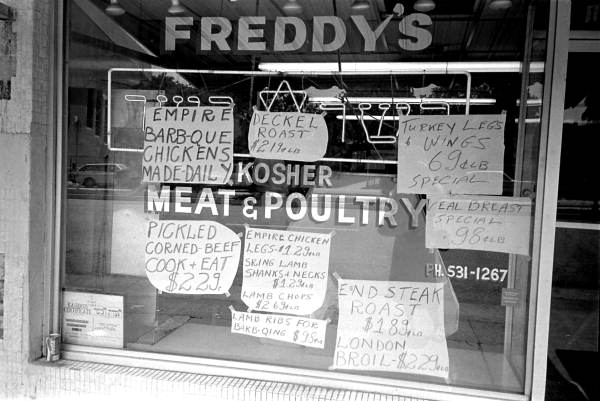 FREDDY'S
EMPIRE
BARB-QUE
CHICKENS
MADE-DAILY
DECKEL
ROAST
$2.19 LB
TURKEY LEGS
& WINGS
69¢ LB
SPECIAL
KOSHER
MEAT & POULTRY
VEAL BREAST
SPECIAL
.98¢ LB
PICKLED
CORNED-BEEF
COOK + EAT
$2.29.
EMPIRE CHICKEN
LEGS-$1.29 LB
SRING LAMB
SHANKS + NECKS
$1.29 LB
LAMB CHOPS
$2.69 LB
LAMB RIBS FOR
BARB-QING $.95 LB
PH. 531-1267
END STEAK
ROAST
$1.89 LB
LONDON
BROIL-$2.29 LB
KOSHER
CERTIFICATE